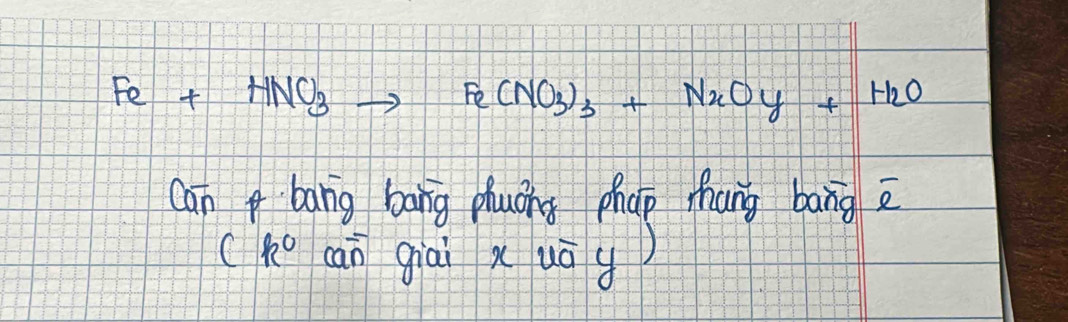 Fe + HNO3 → Fe(NO3)3 + NxOy + H2O
Cân bằng bằng phương pháp thăng bằng ē
(k° cần giải x và y)